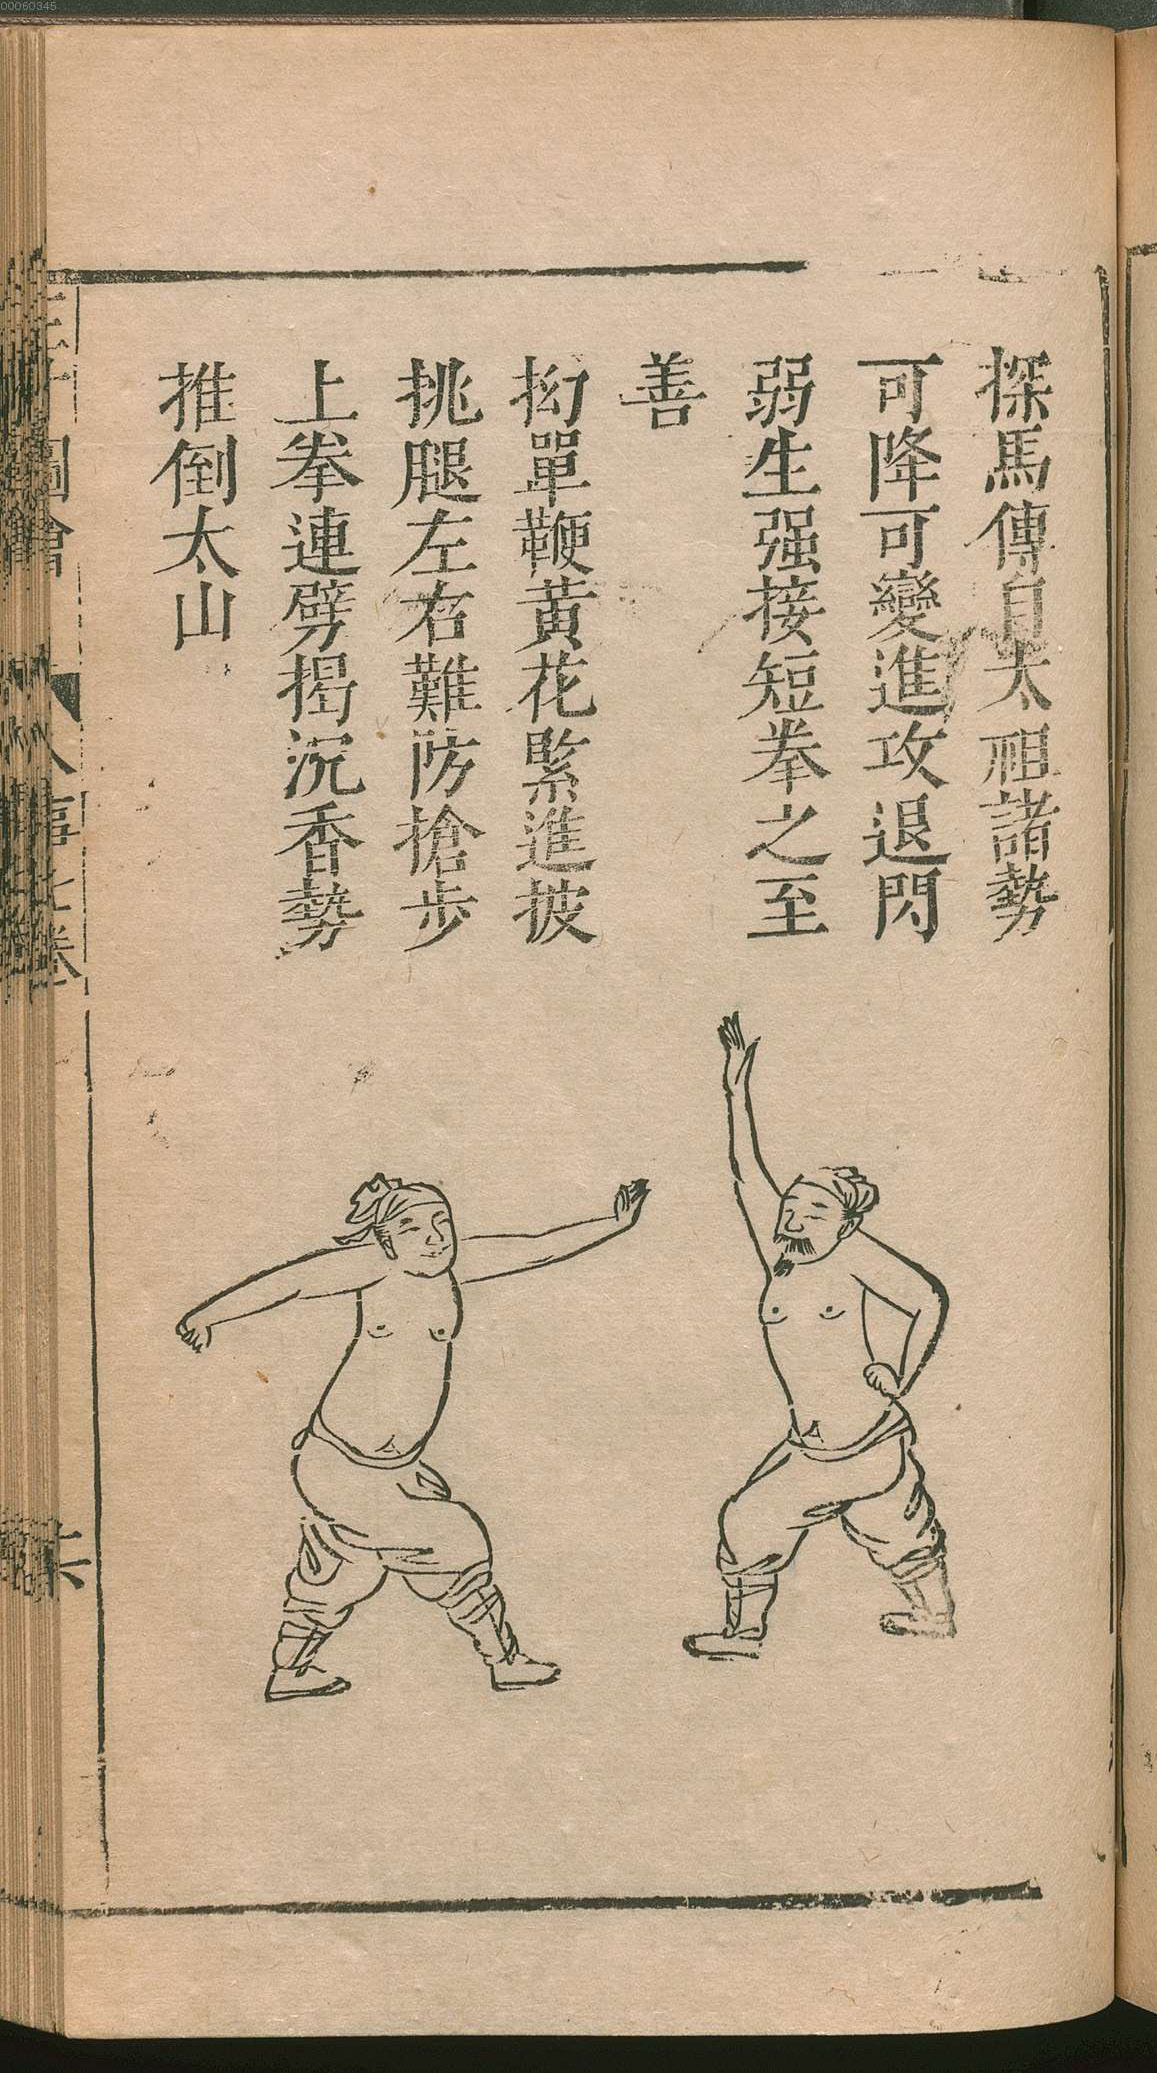 探馬傳自太祖諸勢
可降可變進攻退閃
弱生强接短拳之至
善
拗單鞭黄花緊進披
挑腿左右難防搶步
上拳連劈揭沉香勢
推倒太山
圖會
人事七卷
00060345